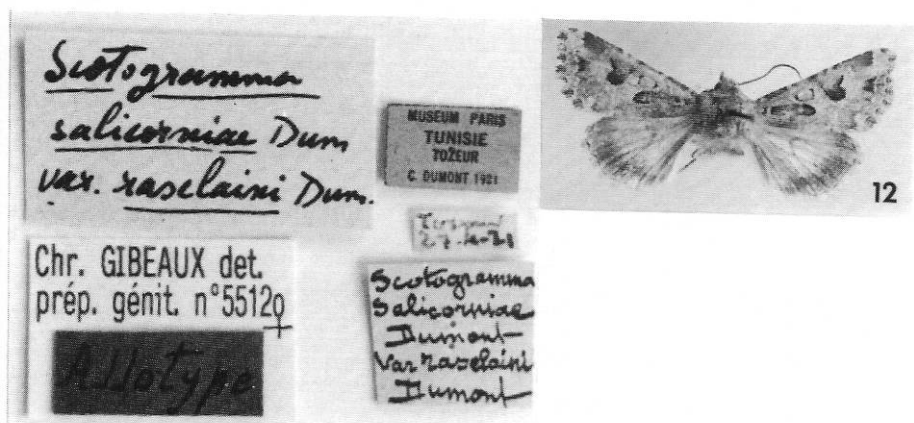 Scotogramma
salicorniae Dum
var. raselaini Dum.
MUSEUM PARIS
TUNISIE
TOZEUR
C. DUMONT 1921
12
Chr. GIBEAUX det.
prép. génit. n°5512♀
Allotype
Scotogramma
Salicorniae
Dumont
Var raselaini
Dumont